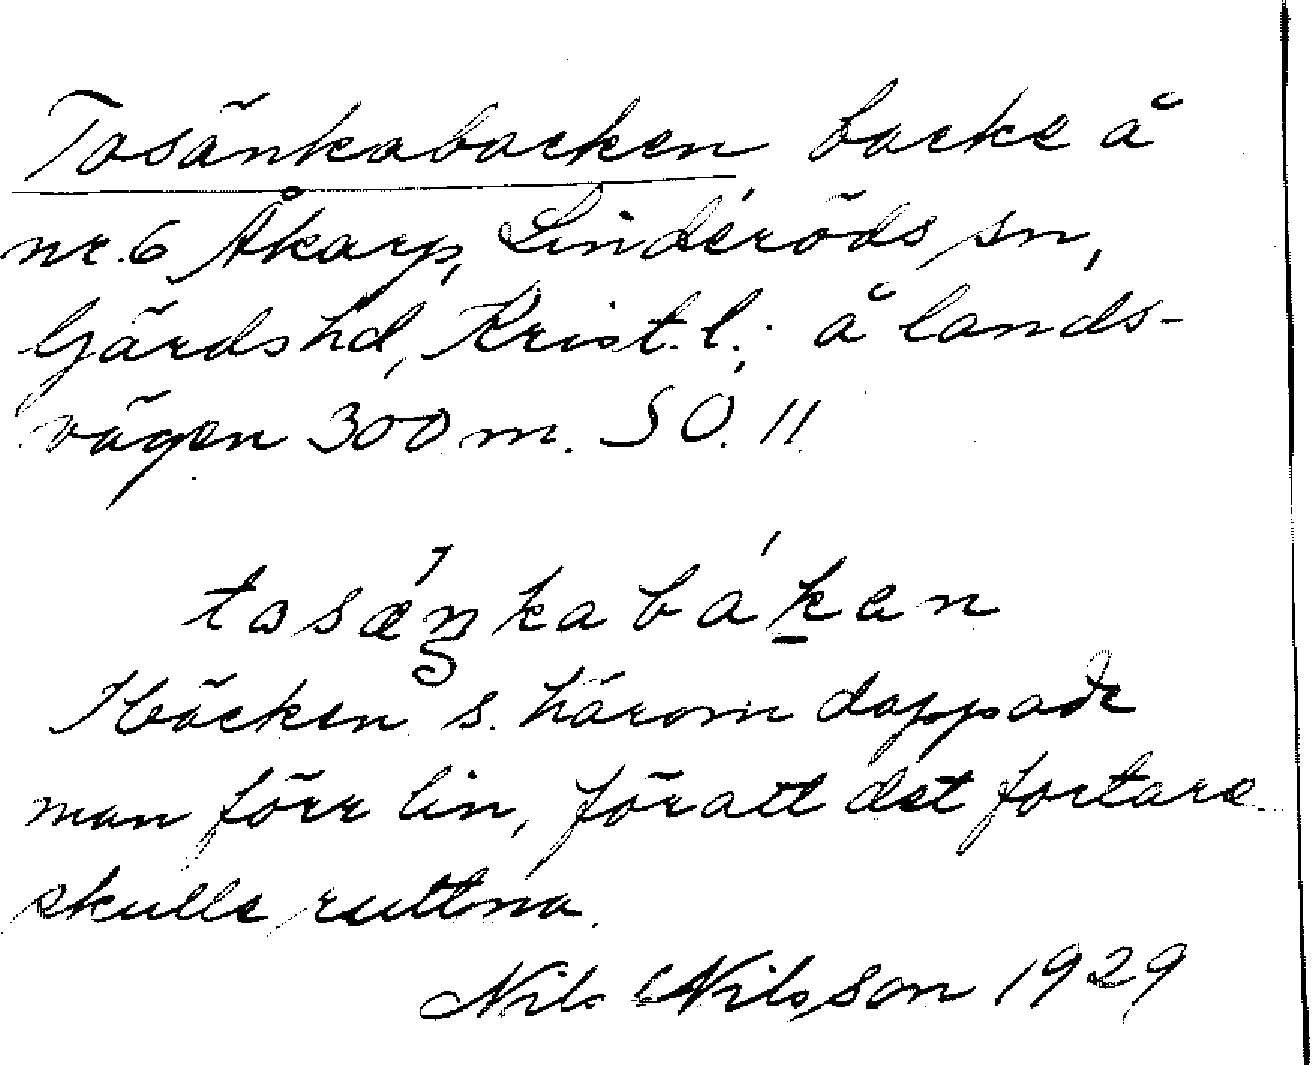 Tosänkabacken backe å
nr. 6 Åkarp, Linderöds sn,
Gärds hd, Krist. l.; å lands-
vägen 300 m. SO. 11.
tosäŋkabáken
I bäcken s. härom doppade
man förr lin, för att det fortare
skulle ruttna.
Nils Nilsson 1929